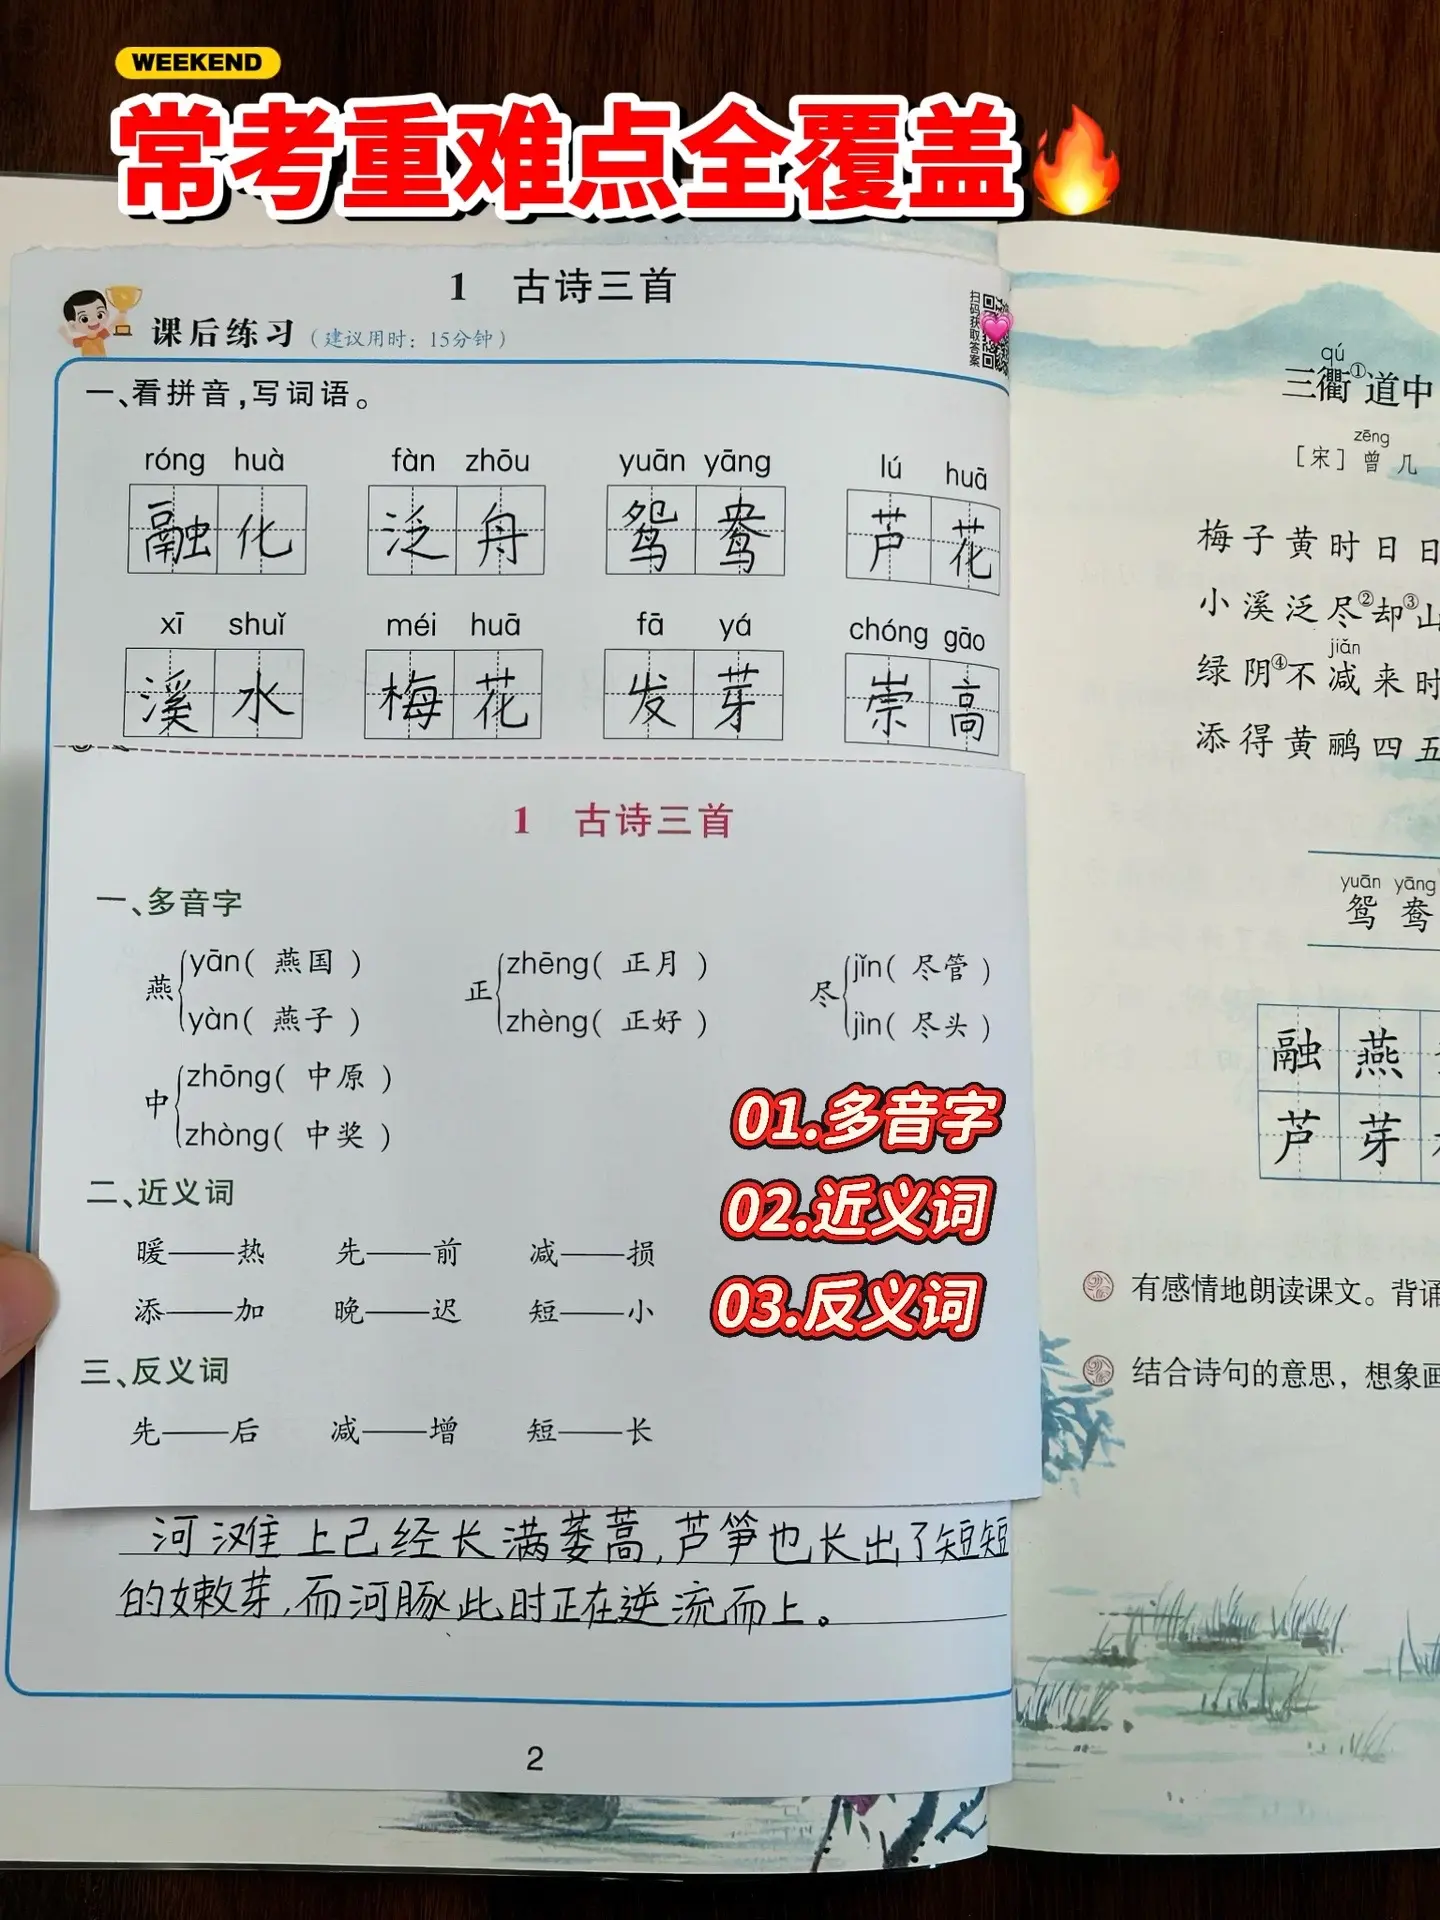 WEEKEND
常考重难点全覆盖
1 古诗三首
课后练习（建议用时：15分钟）
扫码获取答案
一、看拼音,写词语。
róng huà fàn zhōu yuān yāng lú huā
融化 泛舟 鸳鸯 芦花
xī shuǐ méi huā fā yá chóng gāo
溪水 梅花 发芽 崇高
1 古诗三首
一、多音字
燕 yān( 燕国 ) yàn( 燕子 )
正 zhēng( 正月 ) zhèng( 正好 )
尽 jǐn( 尽管 ) jìn( 尽头 )
中 zhōng( 中原 ) zhòng( 中奖 )
二、近义词
暖——热 先——前 减——损
添——加 晚——迟 短——小
三、反义词
先——后 减——增 短——长
01.多音字
02.近义词
03.反义词
河滩上已经长满蒌蒿,芦笋也长出了短短
的嫩芽,而河豚此时正在逆流而上。
2
qú
三衢①道中
zēng
［宋］曾几
梅子黄时日日
小溪泛尽②却③山
jiǎn
绿阴④不减来时
添得黄鹂四五
yuān yāng
鸳鸯
融燕
芦芽
有感情地朗读课文。背诵
结合诗句的意思，想象画